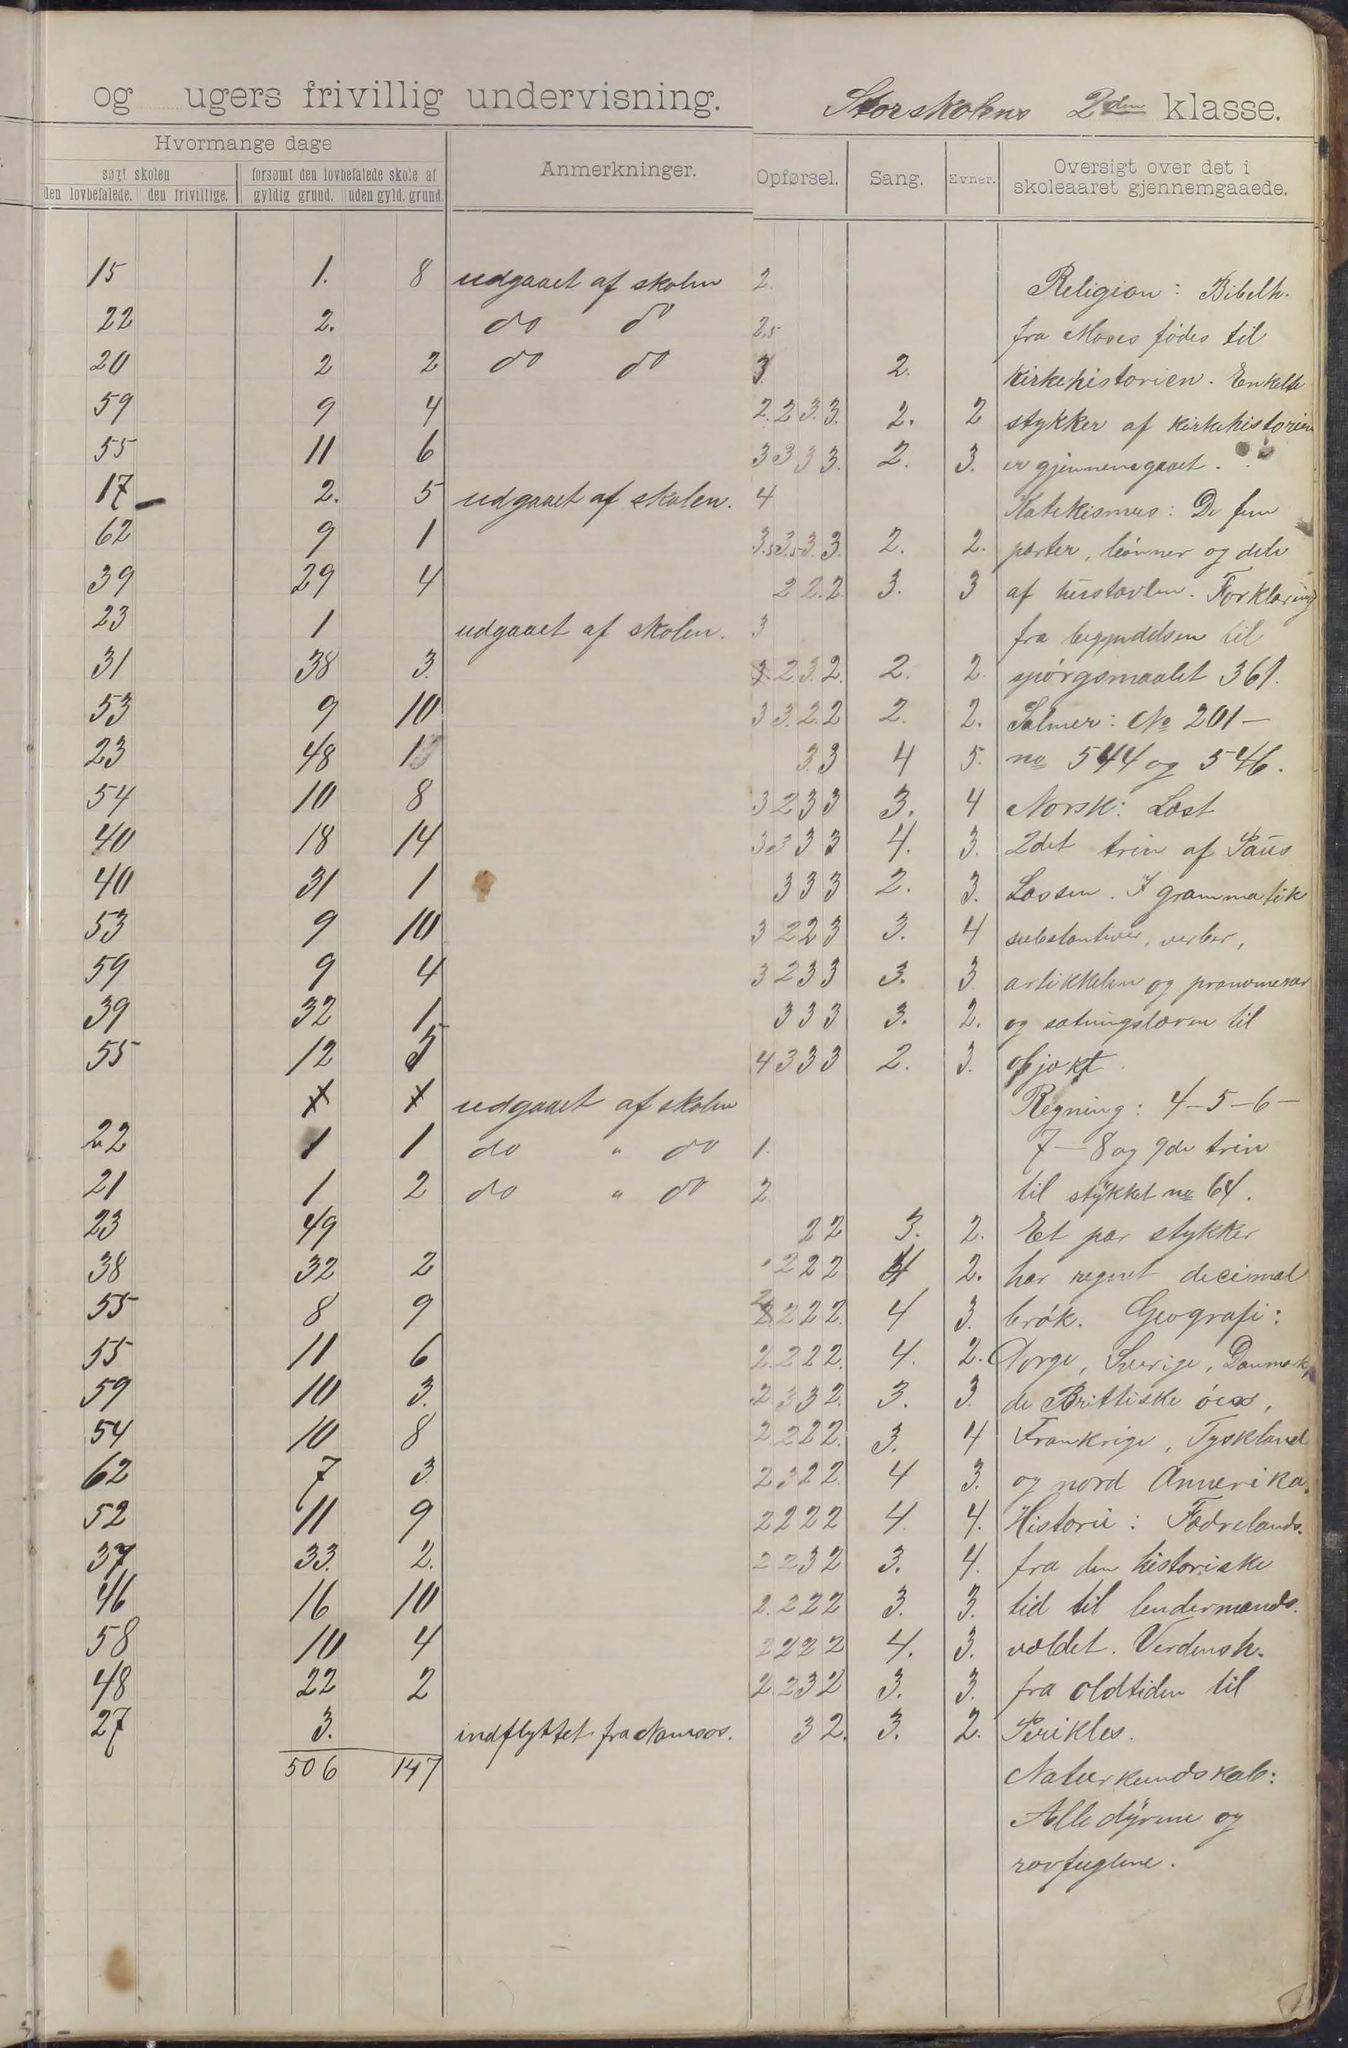 og ugers frivillig undervisning. Storskolens 2den klasse.
Hvormange dage
søgt skolen forsømt den lovbefalede skole af
den lovbefalede. den frivillige. gyldig grund. uden gyld. grund.
Anmerkninger. Opførsel. Sang. Evner.
Oversigt over det i
skoleaaret gjennemgaaede.
15 1. 8 udgaaet af skolen 2.
22 2. do do 2.5
20 2 2 do do 3. 2.
59 9 4 2. 2 3. 3. 2. 2
55 11 6 3 3 3 3. 2. 3.
17 2. 5 udgaaet af skolen. 4
62 9 1 3.5 3.5 3. 3. 2. 2.
39 29 4 2 2. 2. 3. 3
23 1 udgaaet af skolen. 3
31 38 3. 2 3. 2. 2. 2.
53 9 10 3 3. 2. 2 2. 2.
23 48 1 3. 3 4 5.
54 10 8 3 2 3 3 3. 4
40 18 14 3 3 3 3 4. 3.
40 31 1 3 3 3 2. 3.
53 9 10 3 2 2 3 3. 4
59 9 4 3 2 3 3 3. 3
39 32 1 3 3 3 3. 2.
55 12 5 4 3 3 3 2. 3.
udgaaet af skolen
22 1 1 do " do 1.
21 1 2 do " do 2
23 49 2 2 3. 2.
38 32 2 2 2 2 4 2.
55 8 9 2 2 2 2. 4 3.
55 11 6 2. 2 2 2. 4. 2.
59 10 3. 2. 3 3 2. 3. 3.
54 10 8 2 2 2 2. 3. 4
62 7 3 2 3 2 2 4 3.
52 11 9 2 2 2 2 4 4.
37 33. 2. 2 2 3 2 3. 4.
46 16 10 2. 2 2 2 3. 3.
58 10 4 2 2 2 2 4. 3.
48 22 2 2. 2 3 2 3. 3.
27 3. indflyttet fra Namsos. 3 2. 3. 2.
506 147
Religion: Bibelh.
fra Moses fødes til
kirkehistorien. Enkelte
stykker af kirkehistorien
er gjennemgaaet.
Katekismus: De fem
parter, bønner og dele
af hustavlen. Forklaring
fra begyndelsen til
spørgsmaalet 361.
Salmer: No 201-
no 544 og 546.
Norsk: Læst
2det trin af Paus
Lassen. I grammatik
substantiver, verber,
artikkelen og pronomener
og sætningslæren til
objekt.
Regning: 4-5-6-
7-8 og 9de trin
til stykket no 64.
Et par stykker
har regnet decimal
brøk. Geografi:
Norge, Sverige, Danmark,
de Brittiske øer,
Frankrige, Tyskland
og nord Amerika.
Historie: Fædrelands.
fra den historiske
tid til lendermænds.
vældet. Verdensh.
fra oldtiden til
Perikles.
Naturkundskab:
Alle dyrene og
rovfuglene.